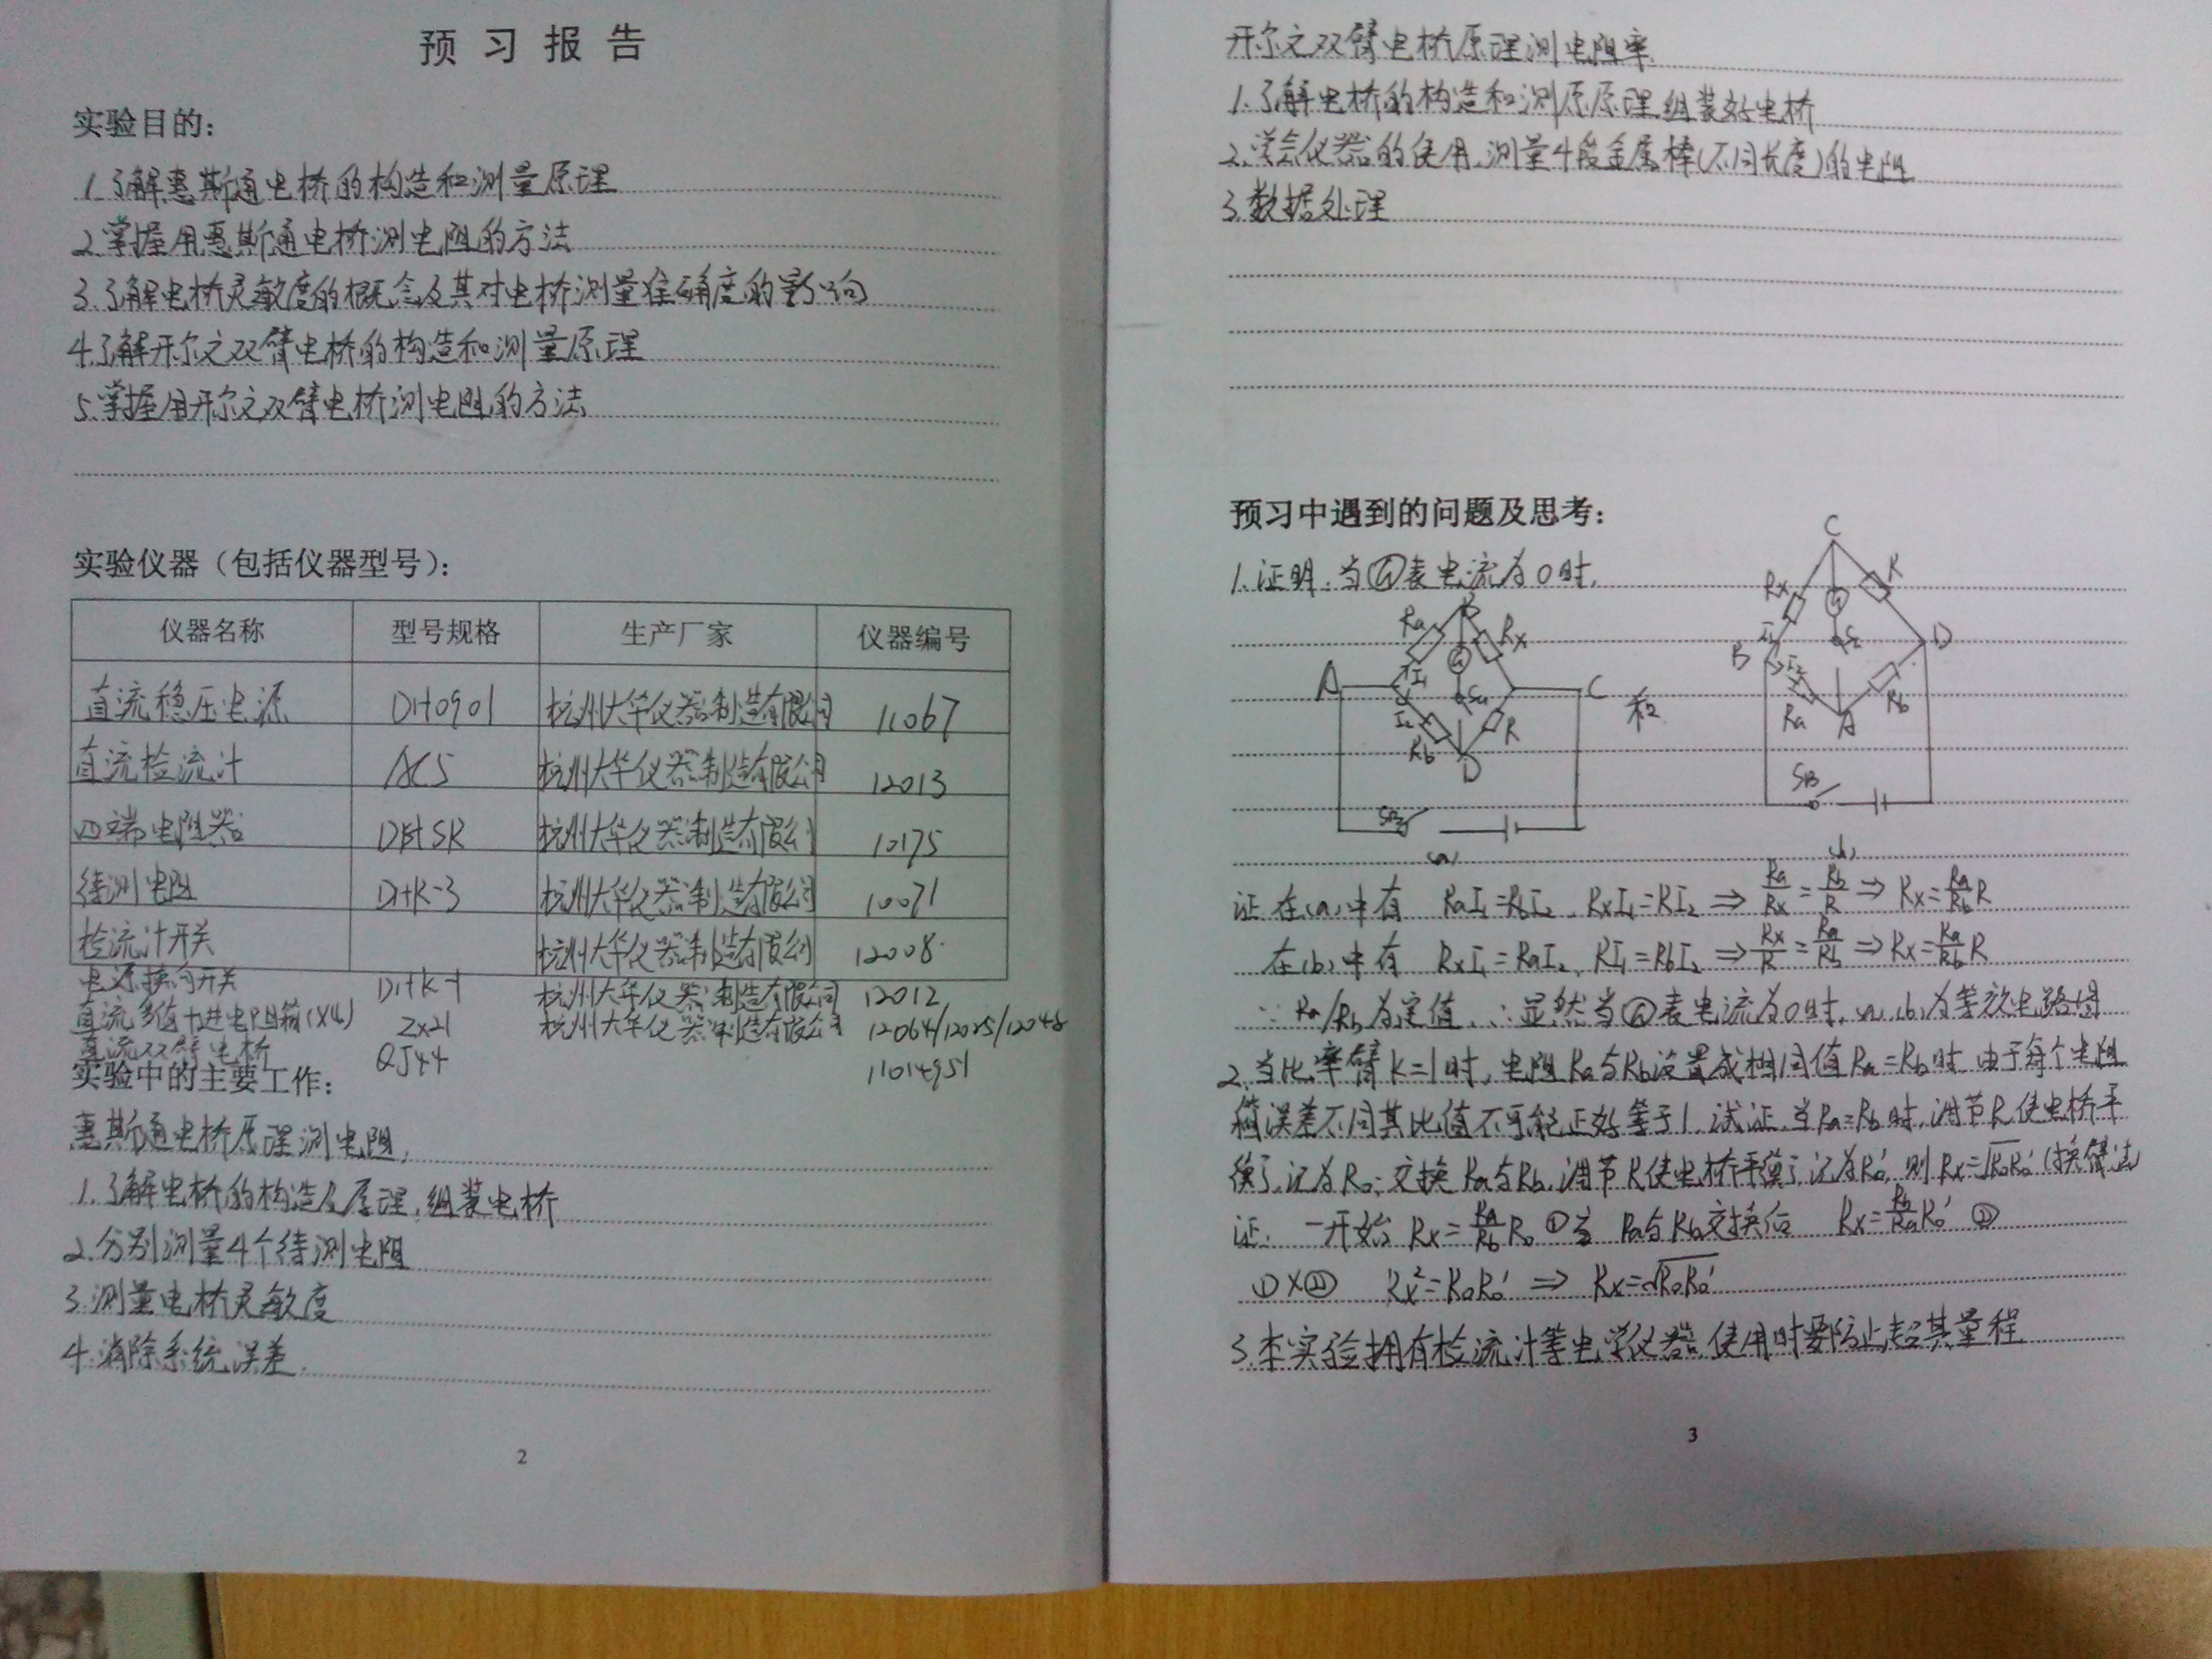 预习报告
实验目的：
1.了解惠斯通电桥的构造和测量原理
2.掌握用惠斯通电桥测电阻的方法
3.了解电桥灵敏度的概念及其对电桥测量准确度的影响
4.了解开尔文双臂电桥的构造和测量原理
5.掌握用开尔文双臂电桥测电阻的方法
实验仪器（包括仪器型号）：
仪器名称 型号规格 生产厂家 仪器编号
直流稳压电源 DH0901 杭州大华仪器制造有限公司 11067
直流检流计 AC5 杭州大华仪器制造有限公司 12013
四端电阻器 DHSR 杭州大华仪器制造有限公司 10175
待测电阻 DHK-3 杭州大华仪器制造有限公司 10071
检流计开关 杭州大华仪器制造有限公司 12008
电源换向开关 DHK-1 杭州大华仪器制造有限公司 12012
直流多值十进电阻箱(X4) ZX21 杭州大华仪器制造有限公司 12064/12025/12048
直流双臂电桥 QJ44 11014951
实验中的主要工作：
惠斯通电桥原理测电阻,
1.了解电桥的构造及原理,组装电桥
2.分别测量4个待测电阻
3.测量电桥灵敏度
4.消除系统误差.
2
开尔文双臂电桥原理测电阻率.
1.了解电桥的构造和测原原理,组装好电桥
2.学会仪器的使用,测量4段金属棒(不同长度)的电阻
3.数据处理
预习中遇到的问题及思考：
1.证明:当Ⓖ表电流为0时,
A B C D Ra Rx Rb R I1 I2 G SG SB (a)
和
C B D A Rx R Ra Rb I1 I2 G SG SB (b)
证 在(a)中有 RaI₁=RbI₂, RxI₁=RI₂ ⇒ Ra/Rx=Rb/R ⇒ Rx=Ra/Rb R
在(b)中有 RxI₁=RaI₂, RI₁=RbI₂ ⇒ Rx/R=Ra/Rb ⇒ Rx=Ra/Rb R
∵ Ra/Rb为定值,∴显然当Ⓖ表电流为0时,(a),(b)为等效电路图
2.当比率臂K=1时,电阻Ra与Rb设置成相同值Ra=Rb时,由于每个电阻
箱误差不同其比值不可能正好等于1,试证,当Ra=Rb时,调节R使电桥平
衡,记为R₀;交换Ra与Rb,调节R使电桥平衡,记为R₀′,则Rx=√R₀R₀′(换臂法)
证. 一开始 Rx=Ra/Rb R₀ ① 当 Ra与Rb交换后 Rx=Rb/Ra R₀′ ②
①×② Rx²=R₀R₀′ ⇒ Rx=√R₀R₀′
3.本实验拥有检流计等电学仪器,使用时要防止超其量程
3